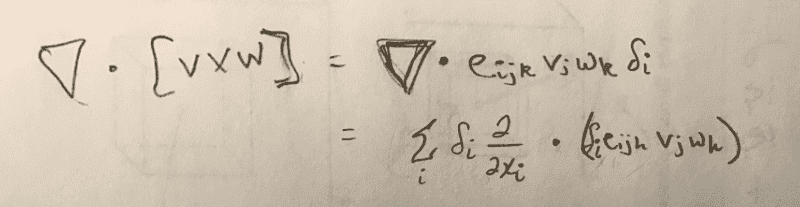 ∇ · [v × w] = ∇ · e_{ijk} v_j w_k δ_i
= ∑_i δ_i ∂/∂x_i · (δ_i e_{ijk} v_j w_k)